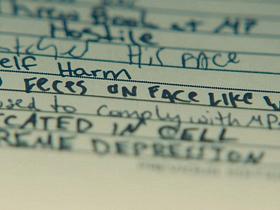 Threw Book at MP
Hostile
His FACE
elf Harm
FECES ON FACE LIKE W
used to comply with MP
CATED IN CELL
REME DEPRESSION